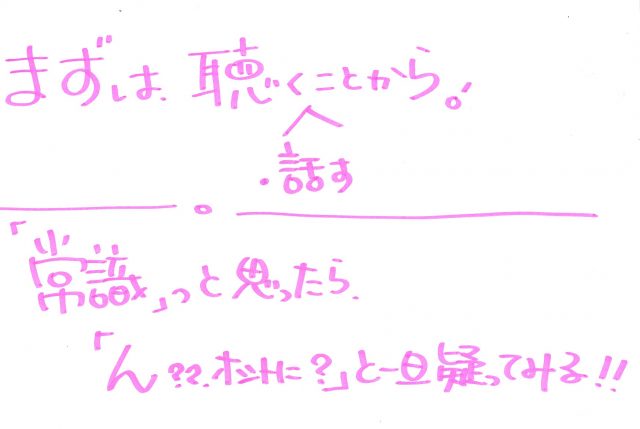 まずは、聴くことから。!
・話す
「常識」っと思ったら、
「ん??.ホントに?」と一旦疑ってみる!!